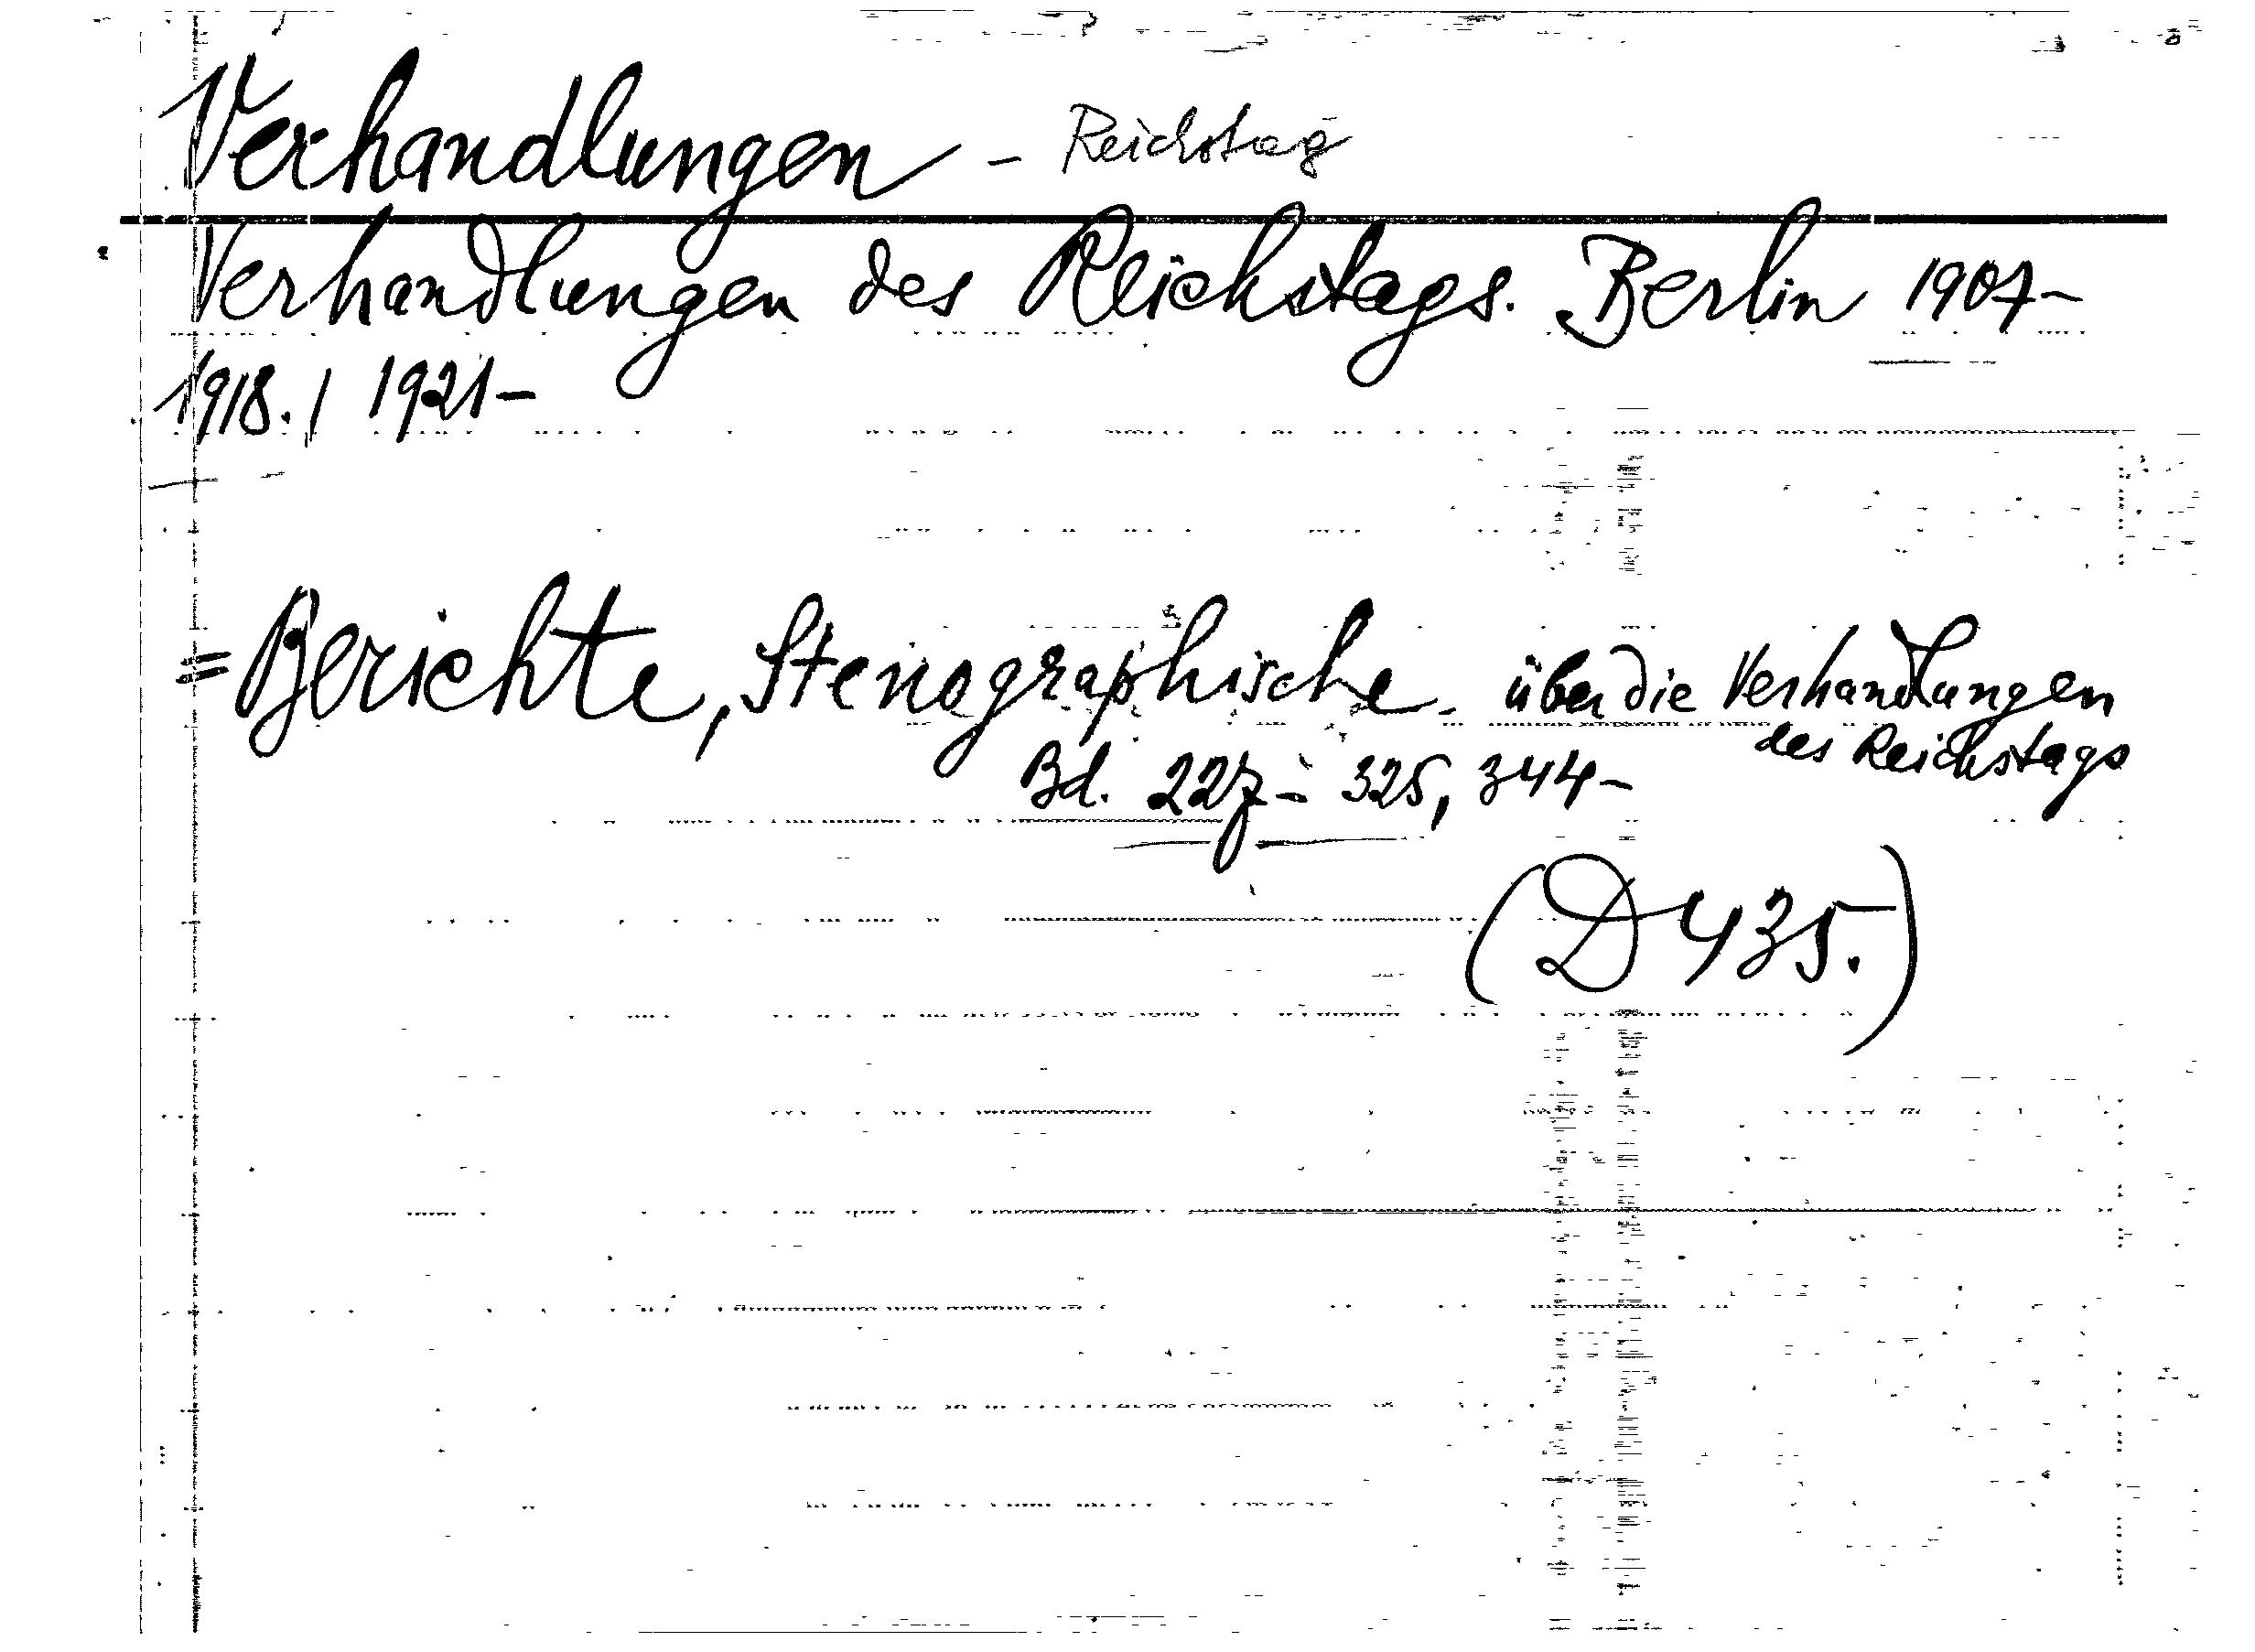 Verhandlungen - Reichstag
Verhandlungen des Reichstags. Berlin 1907-
1918. / 1921-
= Berichte, Stenographische - über die Verhandlungen
des Reichstags
Bd. 227 - 325, 344-
(D 435.)